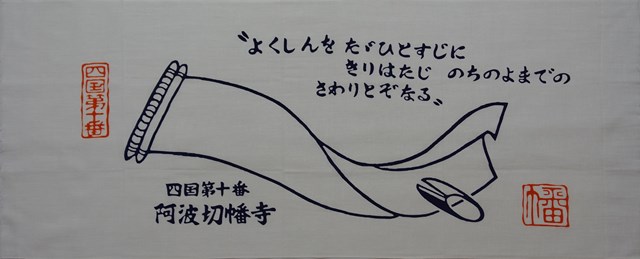 〝よくしんを たゞひとすじに
きりはたじ のちのよまでの
さわりとぞなる〟
四国第十番
四国第十番
阿波切幡寺
幡